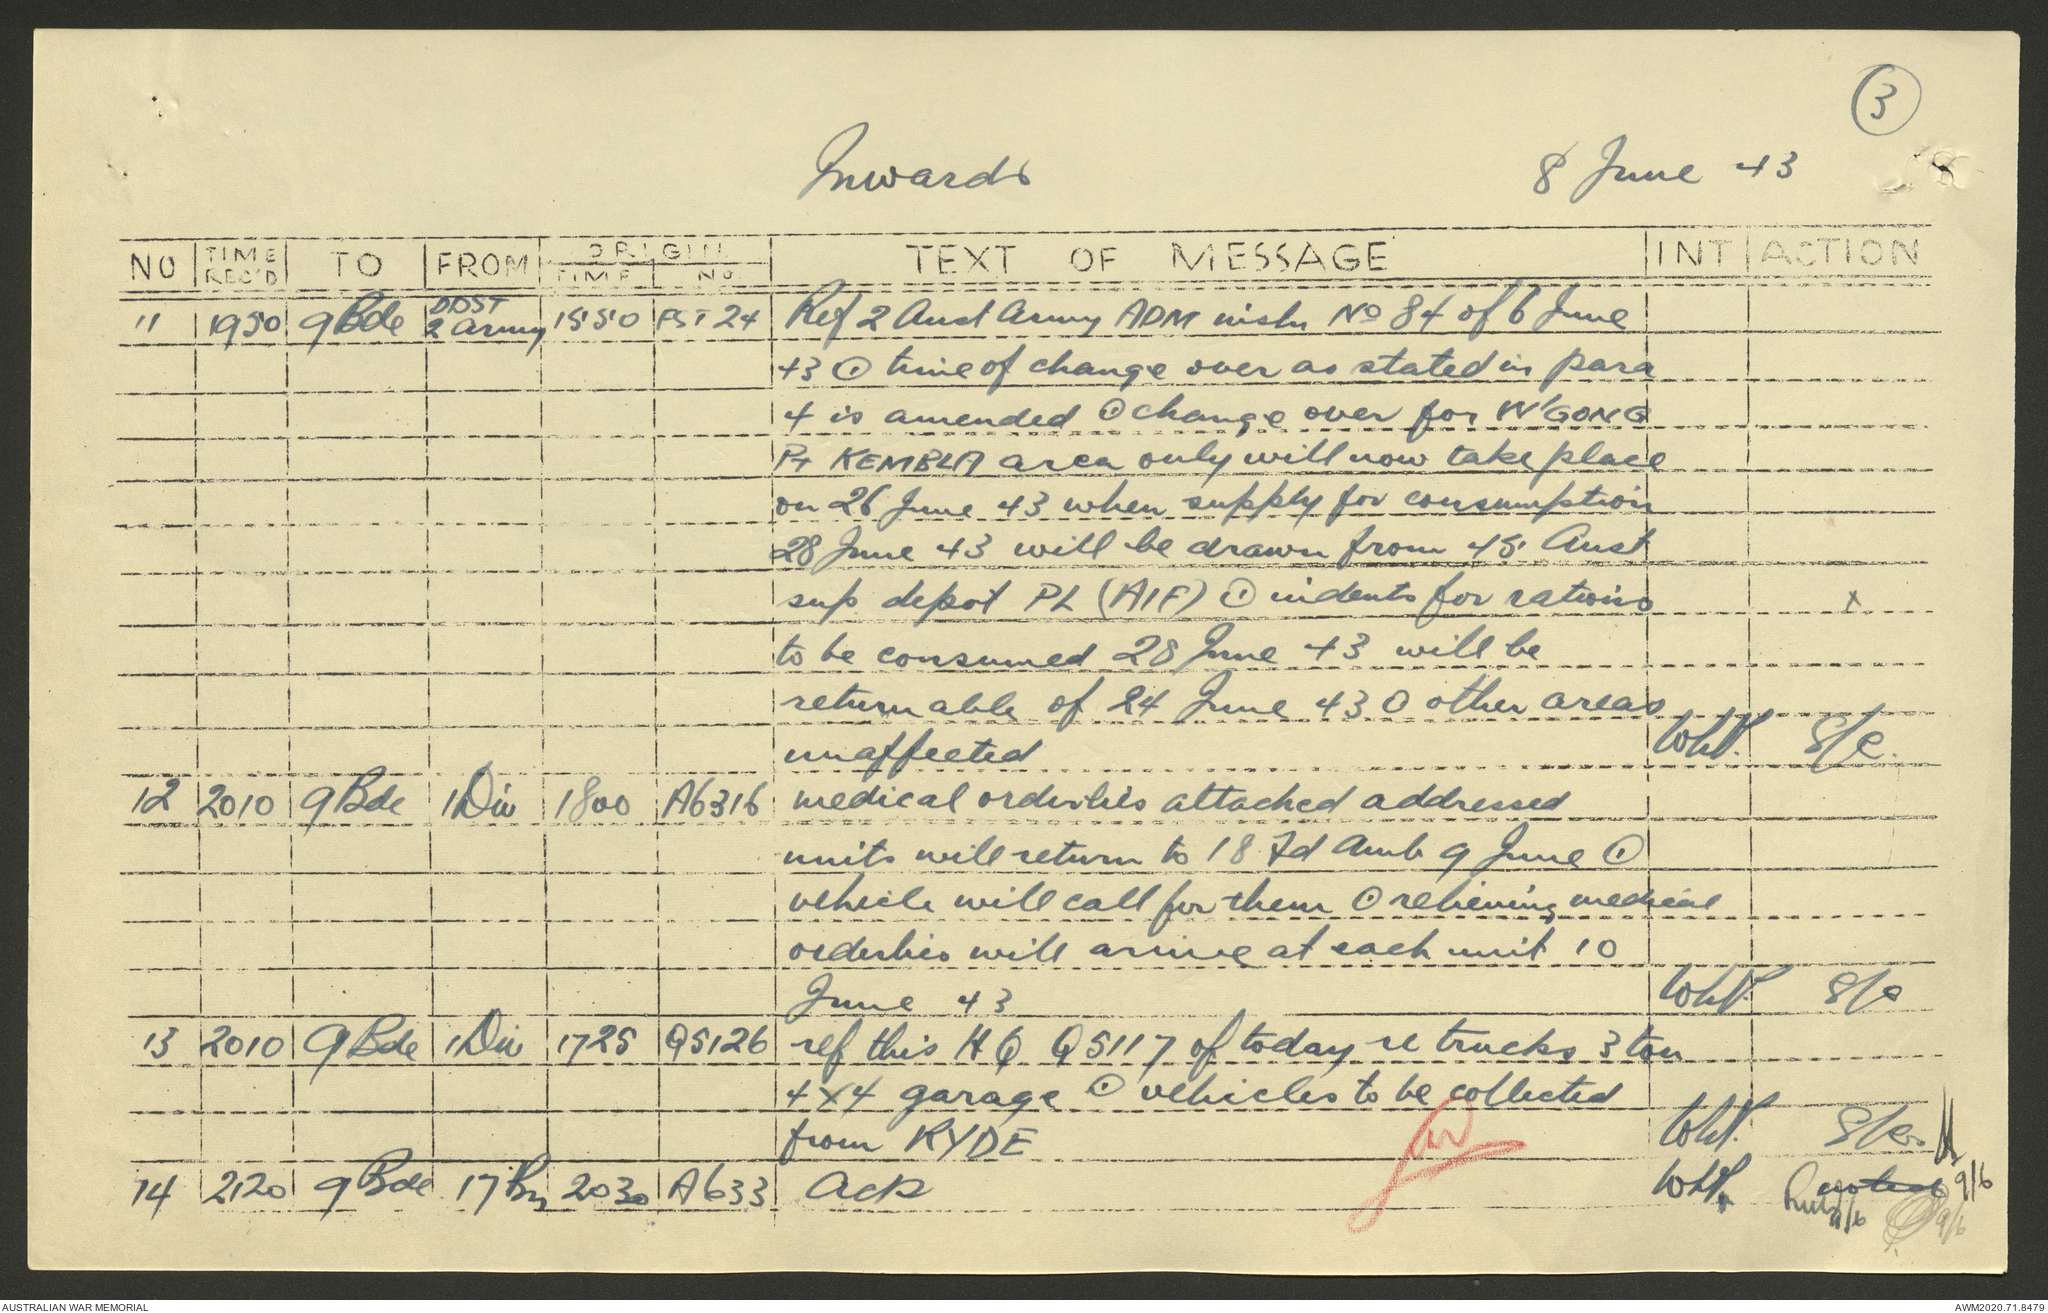 3
Inwards 8 June 43
NO TIME REC'D TO FROM ORIGIN TIME No. TEXT OF MESSAGE INT ACTION
11 1950 9 Bde DDST 2 Army 1550 PST 24 Ref 2 Aust Army ADM instn No 84 of 6 June
43 ⊙ time of change over as stated in para
4 is amended ⊙ change over for W'GONG
Pt KEMBLA area only will now take place
on 26 June 43 when supply for consumption
28 June 43 will be drawn from 45 Aust
sup depot PL (AIF) ⊙ indents for rations x
to be consumed 28 June 43 will be
returnable of 24 June 43 O other areas
unaffected WHP. S/C.
12 2010 9 Bde 1 Div 1800 A6316 medical orderlies attached addressed
units will return to 18 Fd Amb 9 June ⊙
vehicle will call for them ⊙ relieving medical
orderlies will arrive at each unit 10
June 43 WHP. S/C
13 2010 9 Bde 1 Div 1725 QS126 ref this HQ QS117 of today re trucks 3 ton
4x4 garage ⊙ vehicles to be collected
from RYDE WHP. S/C
14 2120 9 Bde 17 Bn 2030 A633 Ack WHP. noted 9/6
9/6 9/6
AUSTRALIAN WAR MEMORIAL AWM2020.71.8479